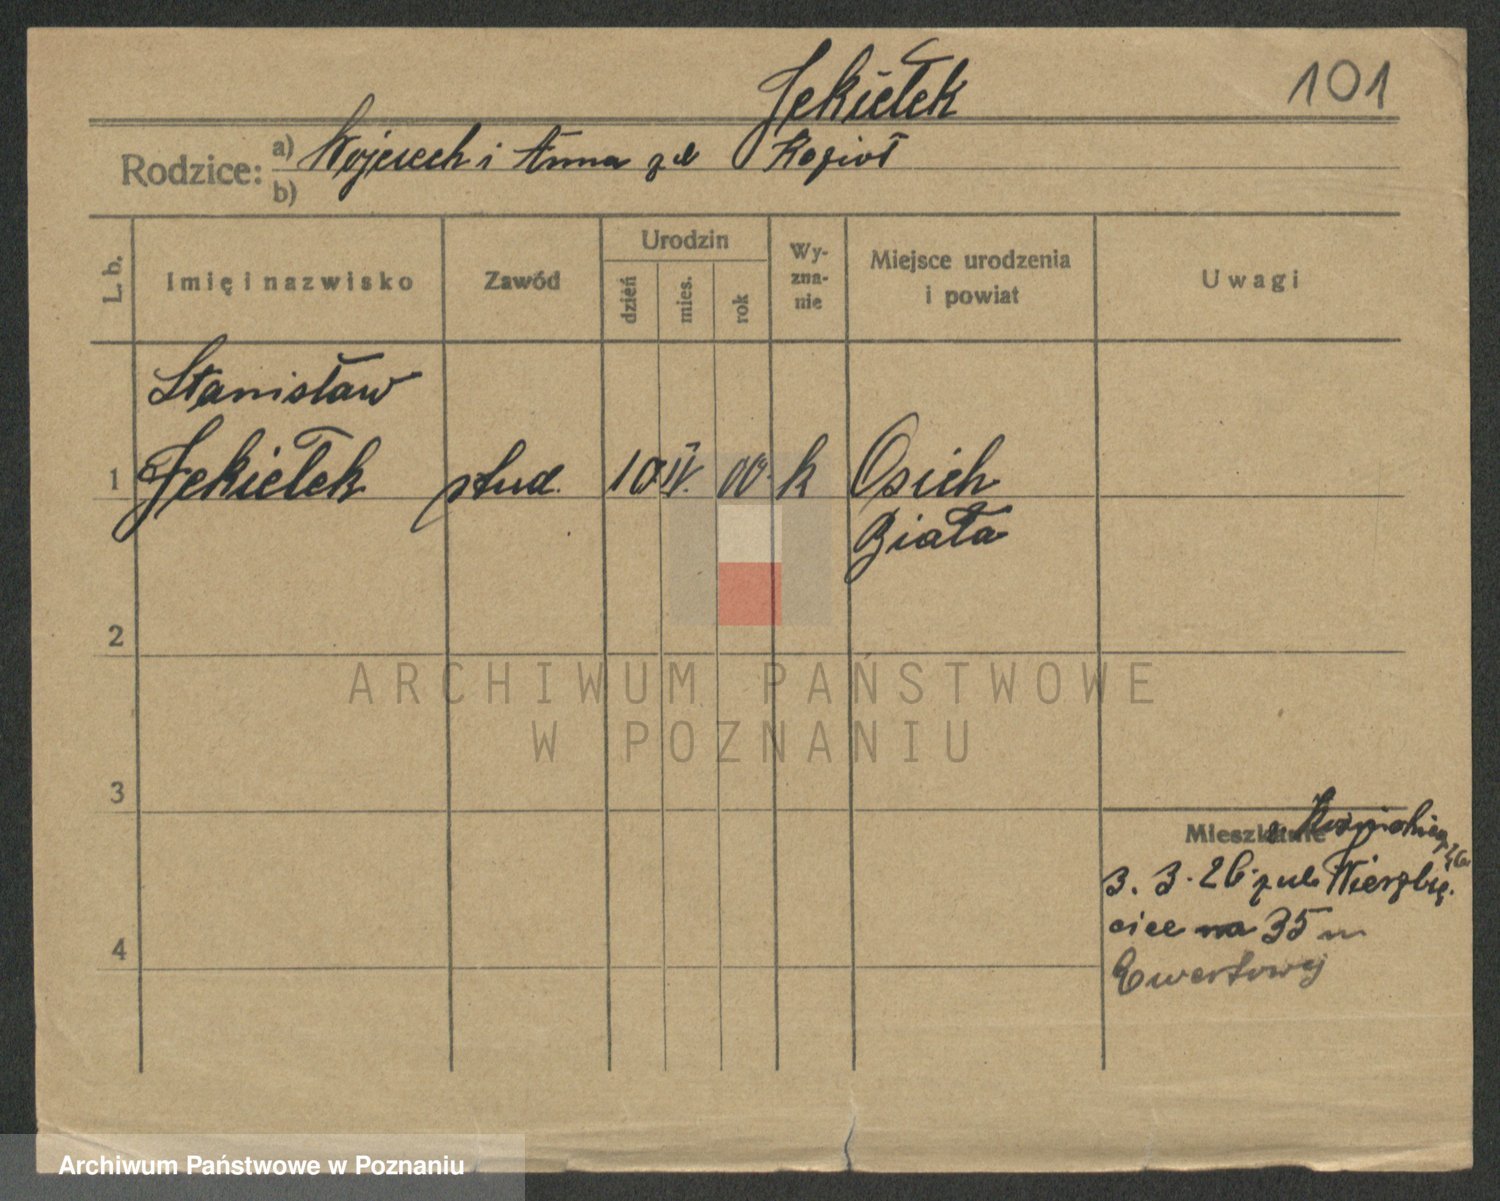 Jekiełek
101
Rodzice:
a) Wojciech i Anna zd Kozioł
b)
L. b.
Imię i nazwisko
Zawód
Urodzin
dzień
mies.
rok
Wy-
zna-
nie
Miejsce urodzenia
i powiat
Uwagi
Stanisław
1 Jekiełek stud. 10 IV. 00. k Osieh
Biała
2
ARCHIWUM PAŃSTWOWE
W POZNANIU
3
Mieszkanie
3. 3. 26. z ul. Wierzbię-
cice na 35 m
4
Ewertowej
Archiwum Państwowe w Poznaniu